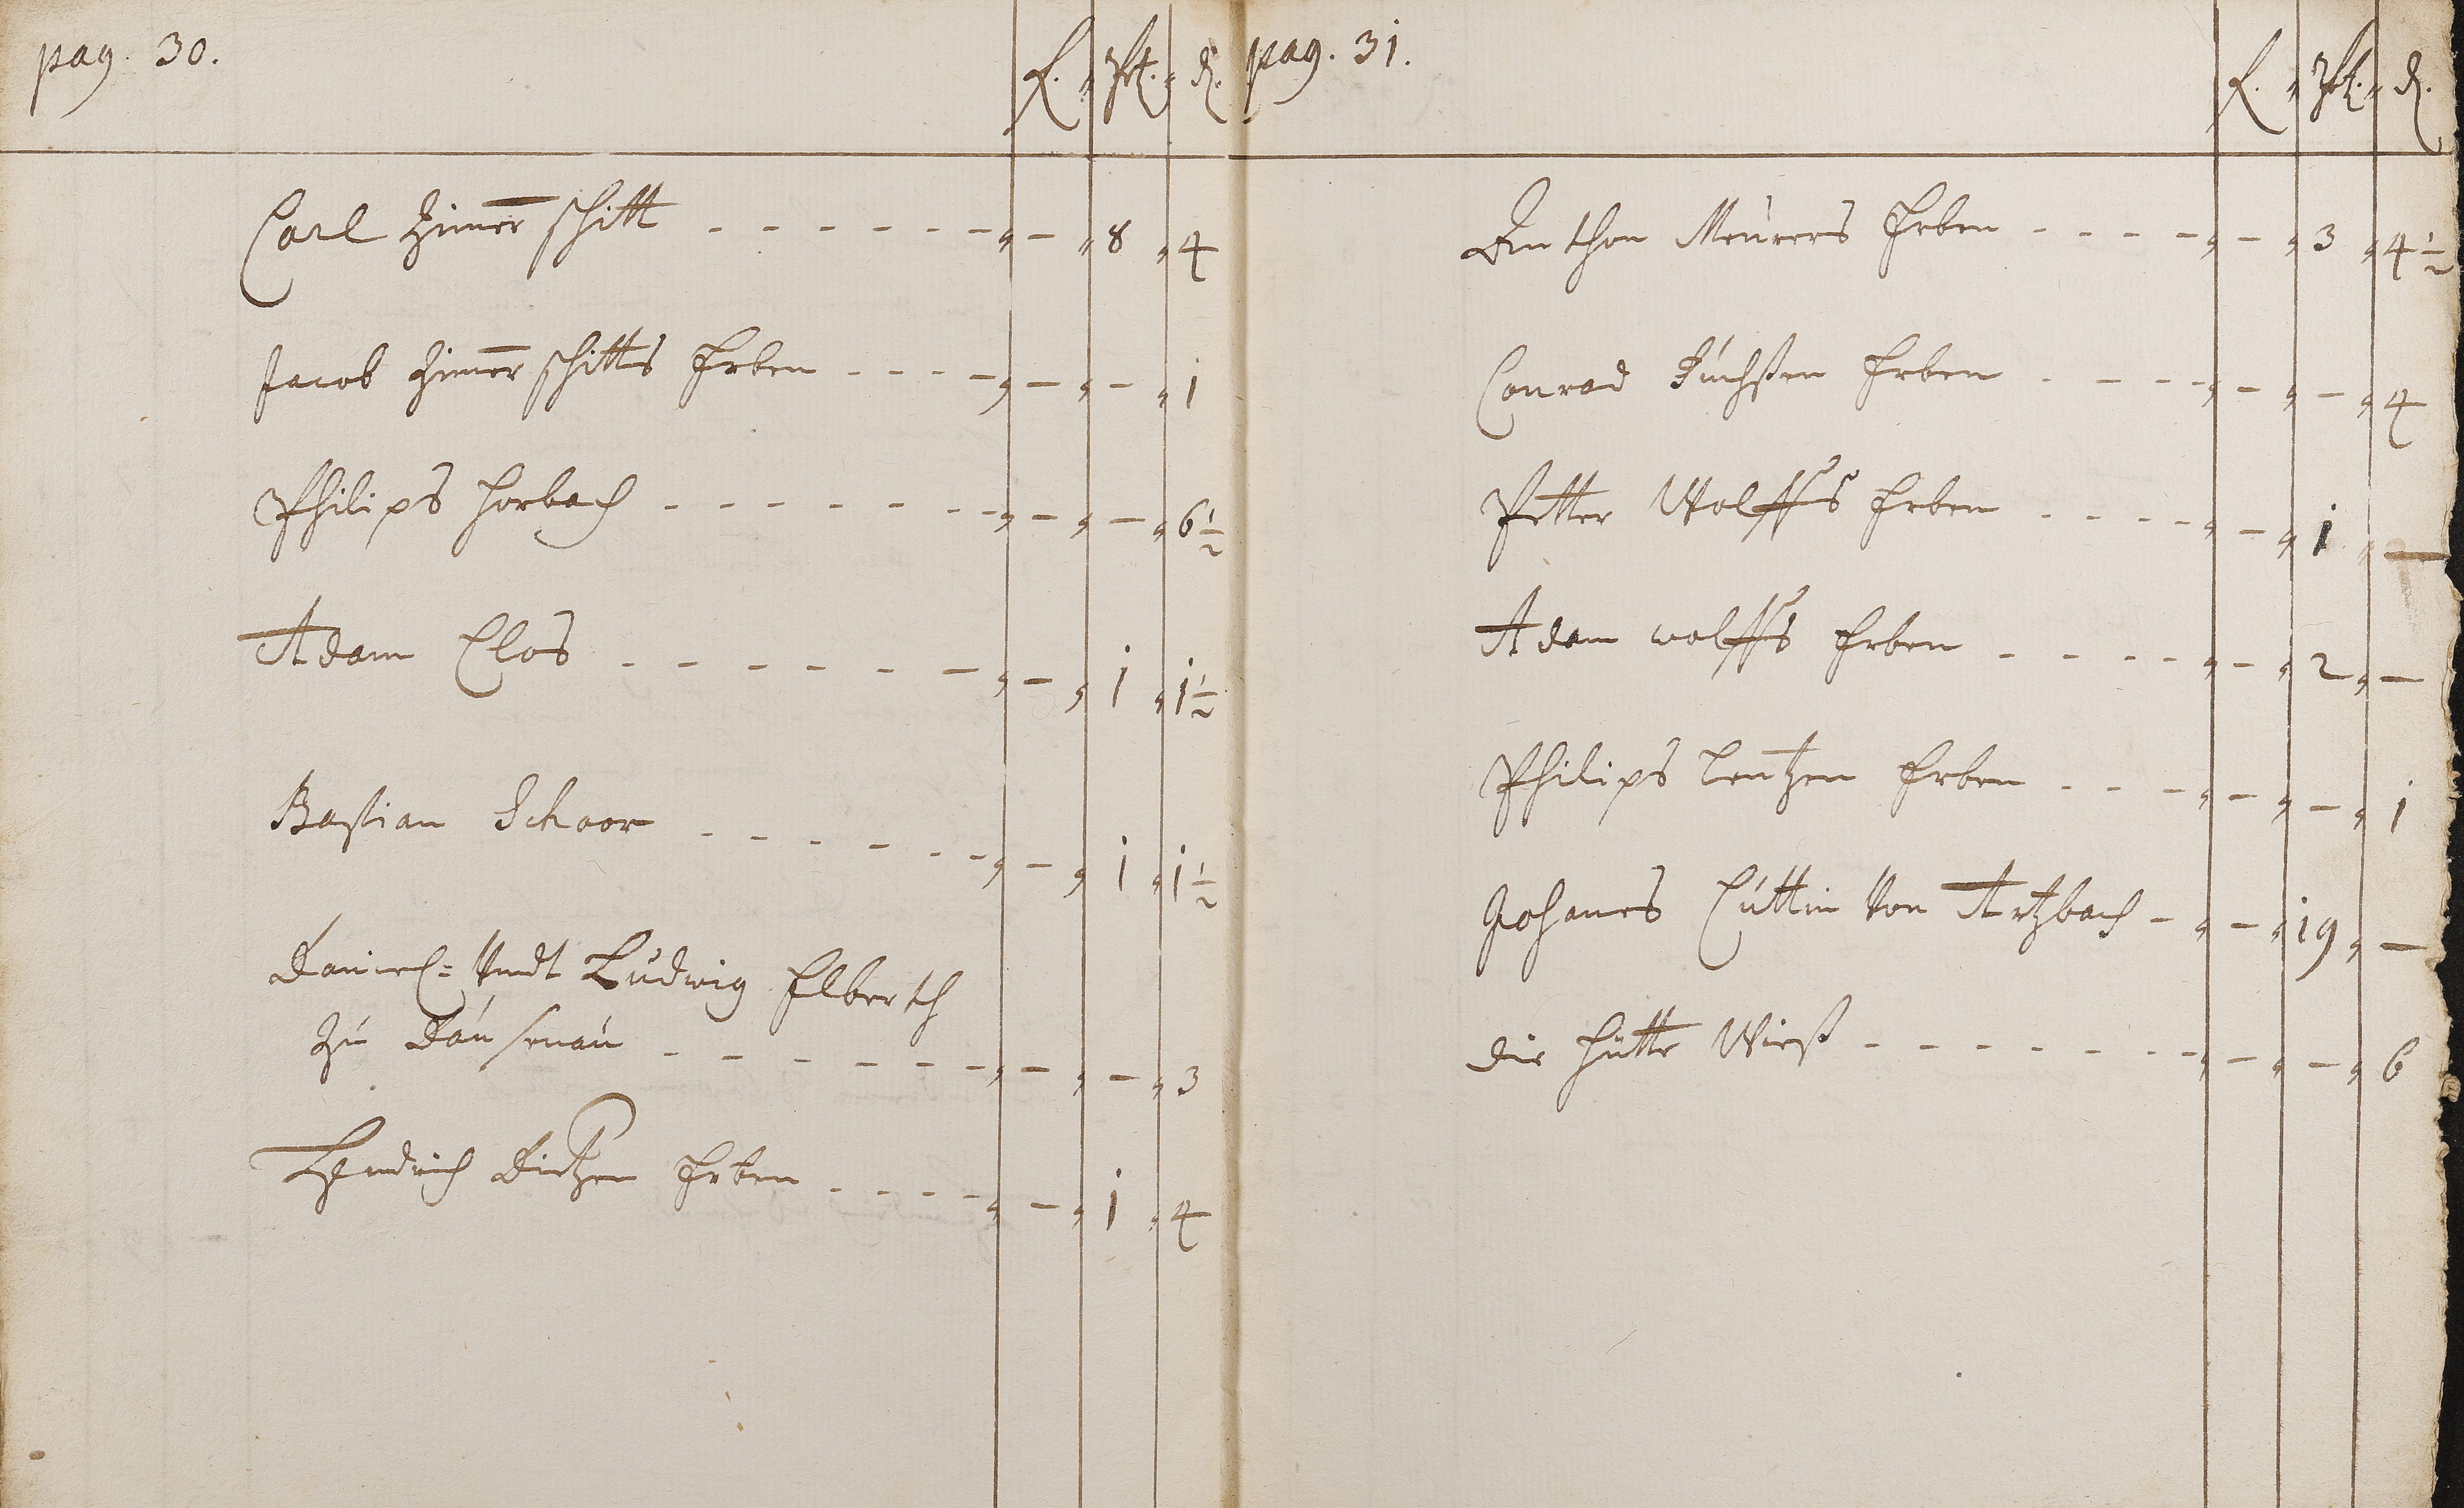 pag. 30.
fl. Alb. d.
Carl Zimerschitt - - - - - - - „ – „ 8 „ 4
Jacob Zimerschitts Erben - - - - „ – „ – „ 1
Philips Horbach - - - - - - - „ – „ – „ 6½
Adam Clos - - - - - - - „ – „ 1 „ 1½
Bastian Schoor - - - - - - „ – „ 1 „ 1½
Daniel= Vndt Ludwig Elberth
zu Dausenau - - - - - - „ – „ – „ 3
Hendrich Dietzen Erben - - - - „ – „ 1 „ 4
pag. 31.
fl. Alb. d.
Anthon Meurers Erben - - - - „ – „ 3 „ 4½
Conrad Fuchsen Erben - - - - „ – „ – „ 4
Petter Wolffs Erben - - - - „ – „ 1 „ –
Adam wolffs Erben - - - - „ – „ 2 „ –
Philips Lentzen Erben - - - „ – „ – „ 1
Johanes Von Artzbach - „ – „ 19 „ –
die Hütte Wieß - - - - - - - „ – „ – „ 6